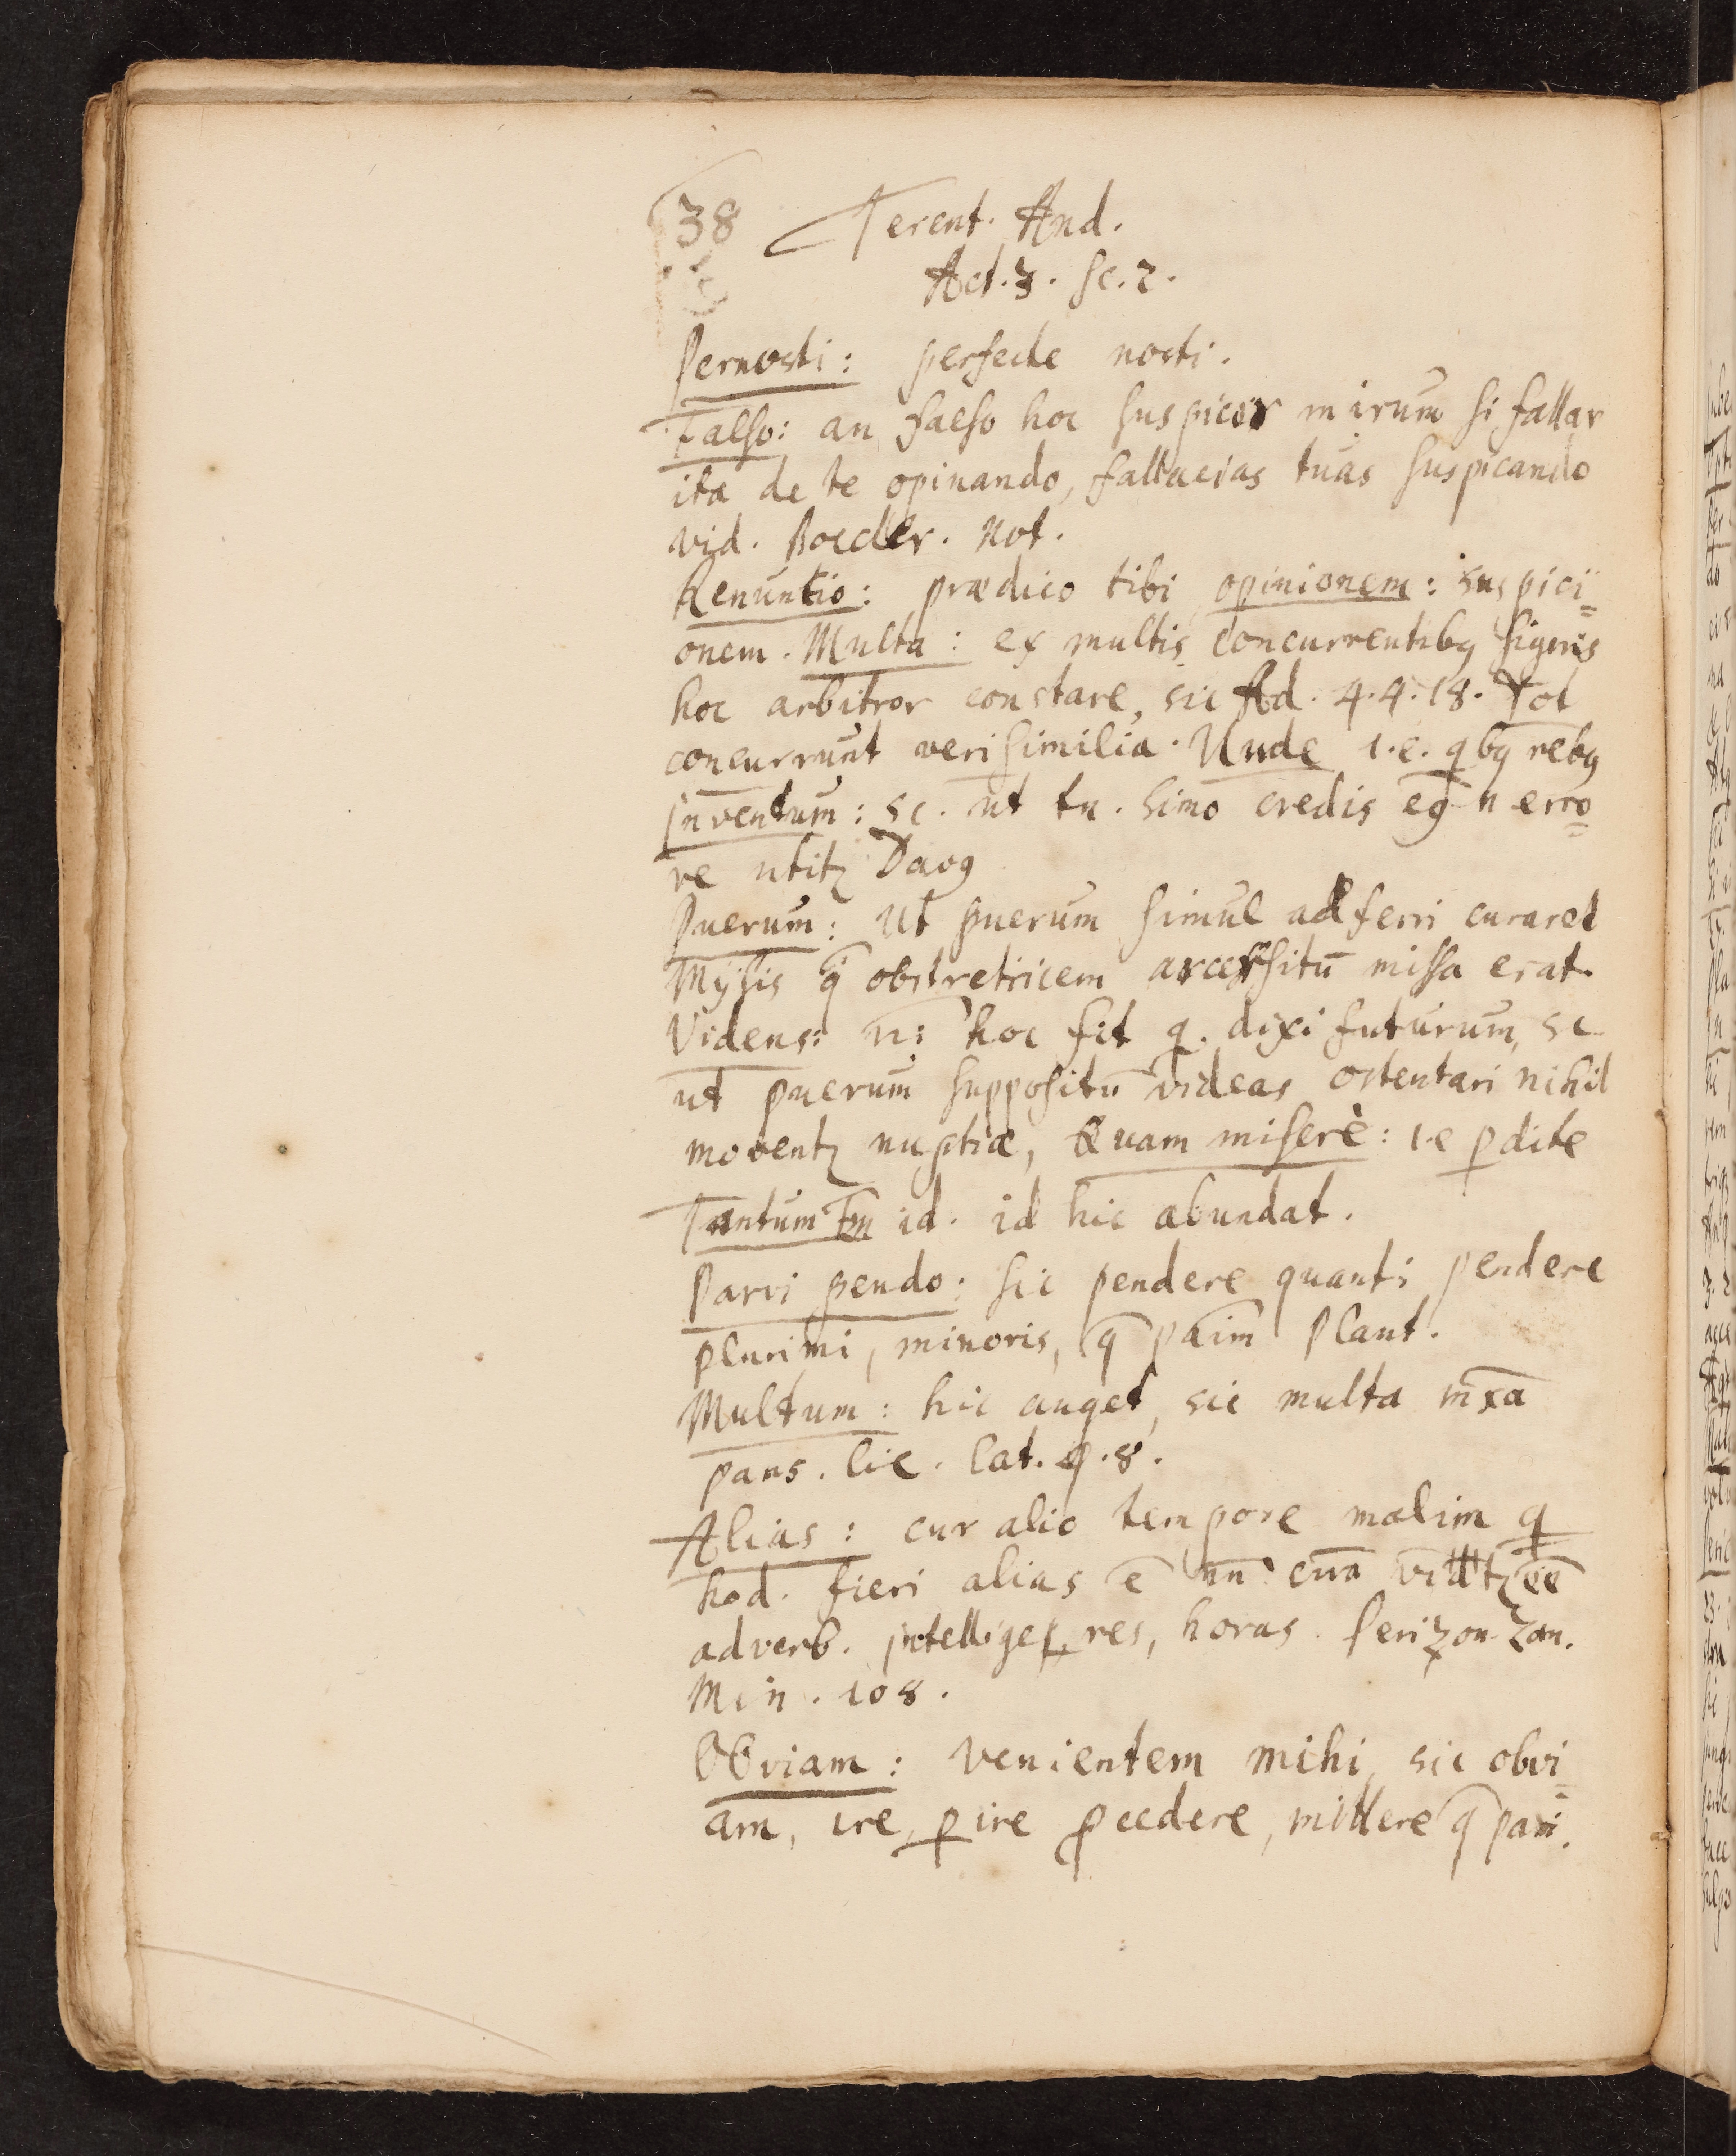 38 Terent. And.
Act. 3. sc. 2.
Pernosti: perfecte nosti.
Falso: an falso hoc suspicor mirum si fallar
ita de te opinando, fallacias tuas suspicando
vid. Boecler. Not.
Renuntio: prædico tibi opinionem: suspici=
onem. Multa: ex multis concurrentibꝫ signis
hoc arbitror constare, sic Ad. 4.4.18. Tot
concurrunt verisimilia. Unde i.e. qbꝫ rebꝫ
Inventum: sc. ut tu. Simo credis eg n erro=
re utitꝛ Davꝯ
Puerum: Ut puerum simul adferri curaret
Mÿsis q̄ obstretricem arcessitū missa erat.
Videns: n: hoc fit q. dixi futurum, sc
ut puerum suppositū videas ostentari nihil
moventꝛ nuptiæ, Quam miserè: i.e ꝑdite
Tantum tm̄ id. id hic abundat.
Parvi pendo: sic pendere quanti pendere
plurimi, minoris, q̄ paim̄ Plaut.
Multum: hic auget, sic multa mx̄a
pans. lie. Lat. 9.8.
Alias: cur alio tempore malim q
hod. fieri alias ē nn̄ cū̄a vittꝛ ēē
adverb. intellige res, horas. Perizon. San.
Min. 108.
Obviam: venientem mihi, sic obvi=
am, ire, ꝑire ꝓcedere, mittere q̄ pari.